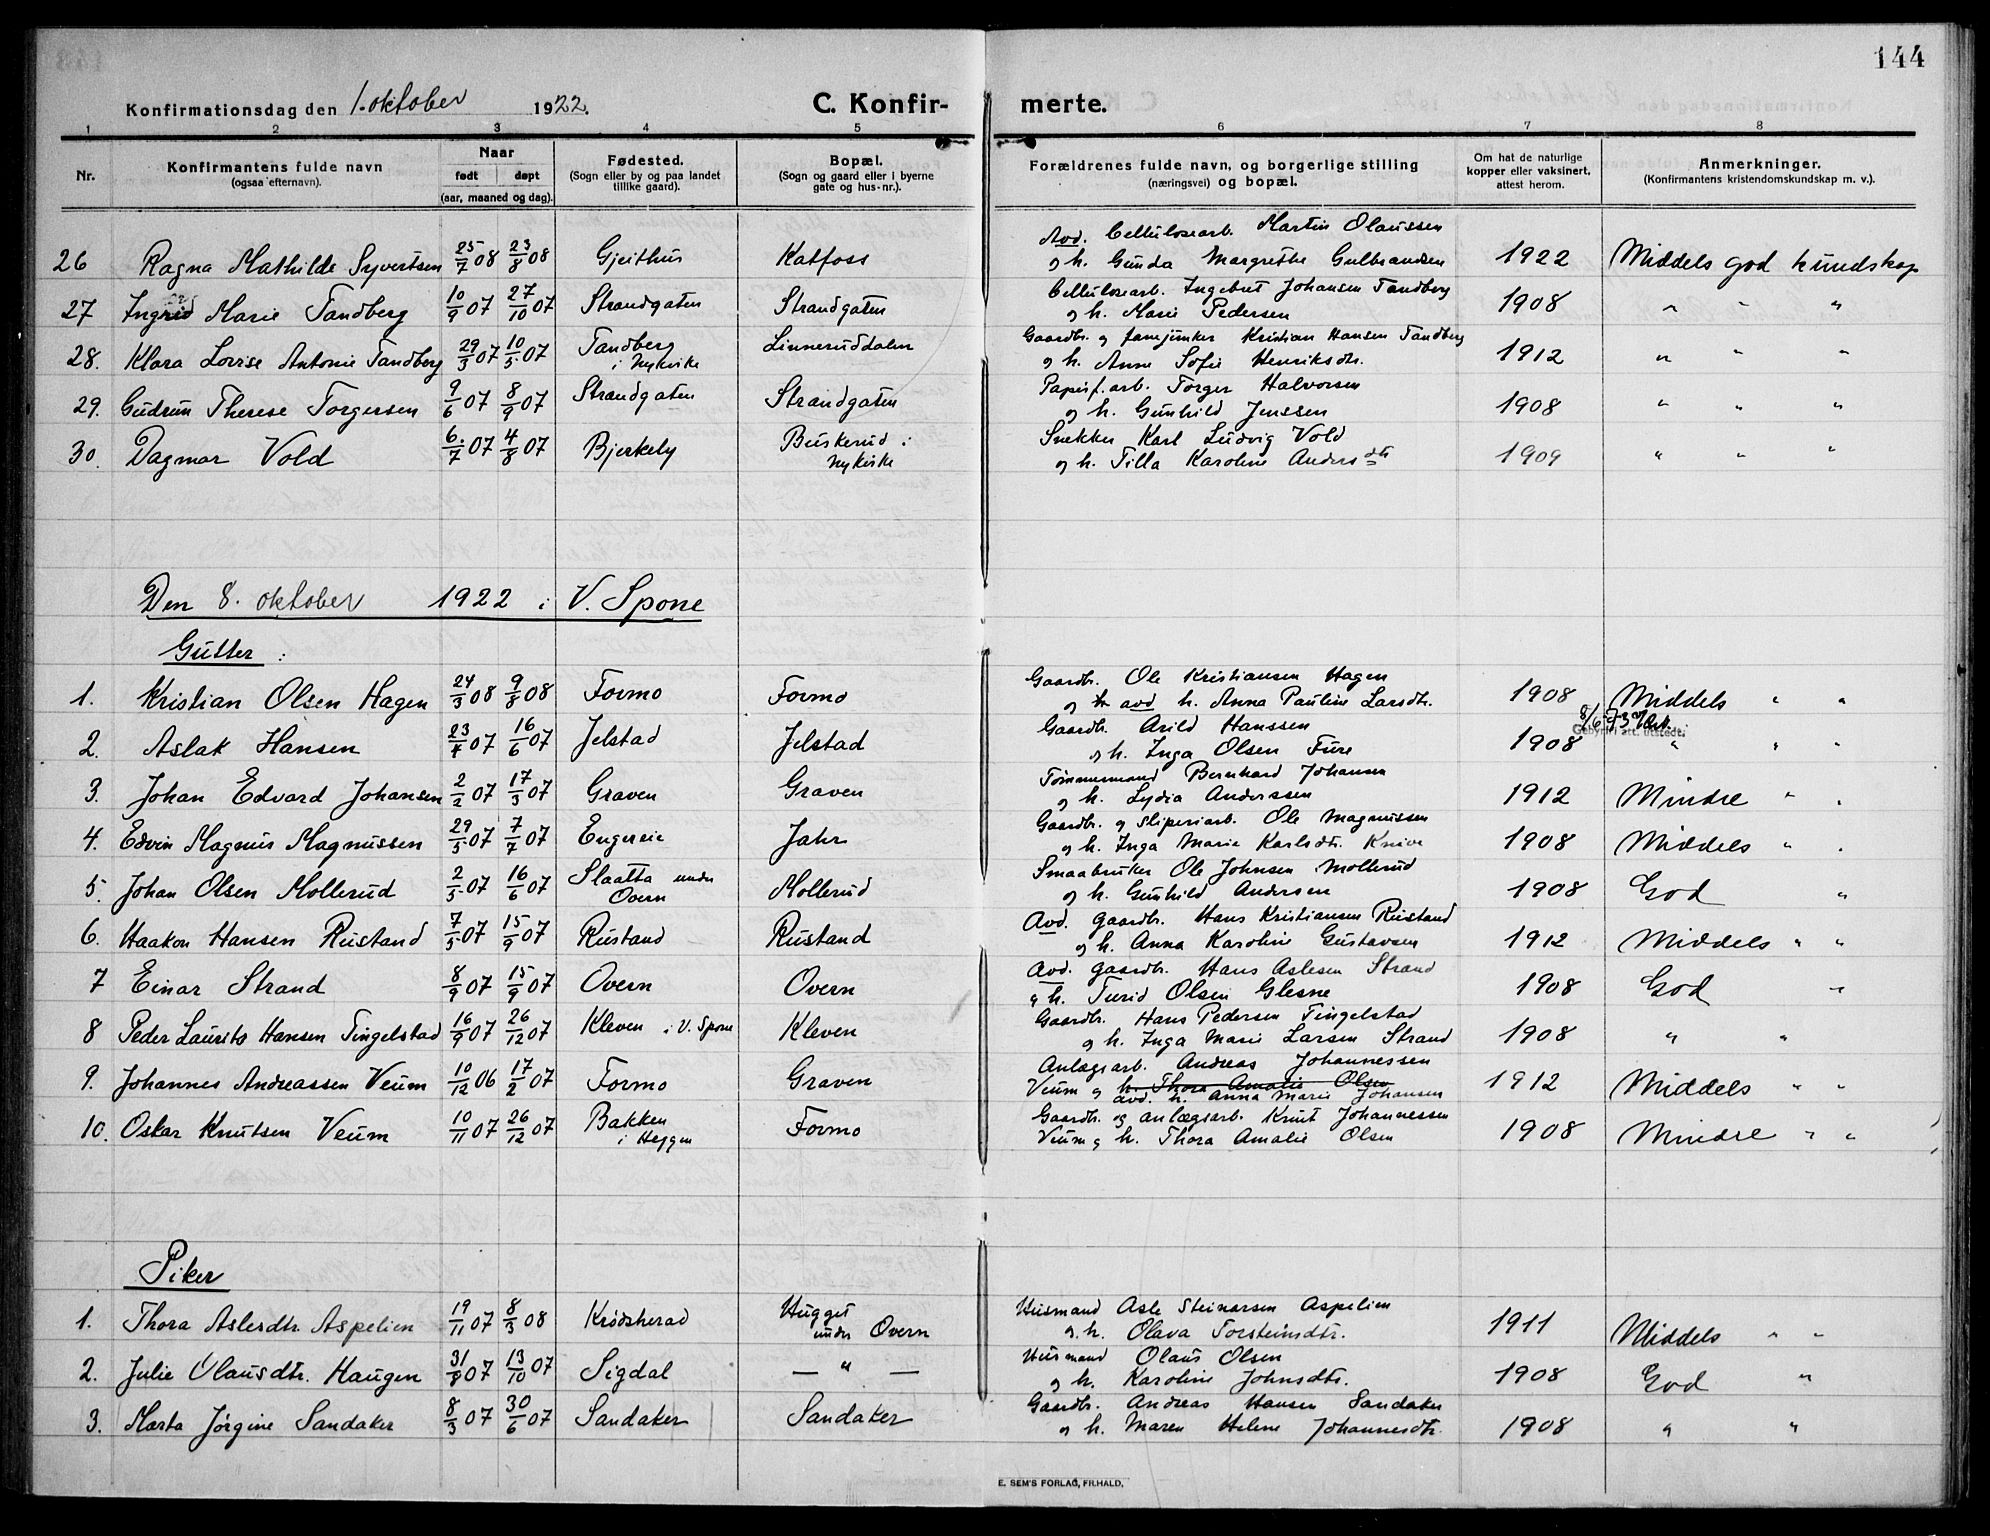 144
Konfirmationsdag den 1. oktober 1922. C. Konfir- merte.
1 2 3 4 5 6 7 8
Nr. Konfirmantens fulde navn (ogsaa efternavn). Naar født døpt (aar, maaned og dag). Fødested. (Sogn eller by og paa landet tillike gaard). Bopæl. (Sogn og gaard eller i byerne gate og hus-nr.). Forældrenes fulde navn, og borgerlige stilling (næringsvei) og bopæl. Om hat de naturlige kopper eller vaksinert, attest herom. Anmerkninger. (Konfirmantens kristendomskundskap m. v.).
Avd. Cellulosearb. Martin Olaussen
26 Ragna Mathilde Syvertsen 25/7 08 23/8 08 Gjeithus Katfoss og h. Gunda Margrethe Gulbrandsen 1922 Middels god kundskap
Cellulosearb. Ingebret Johansen Tandberg
27 Ingrid Marie Tandberg 10/9 07 27/10 07 Strandgaten Strandgaten og h. Marie Pedersen 1908 " " "
Gaardbr. og fanejunker Kristian Hansen Tandberg
28. Klara Lovise Antonie Tandberg 29/3 07 10/5 07 Tandberg i Nykirke Linneruddalen og h. Anne Sofie Henriksdtr. 1912 " " "
Papirf.arb. Torger Halvorsen
29. Gudrun Therese Torgersen 9/6 07 8/9 07 Strandgaten Strandgaten og h. Gunhild Jenssen 1908 " " "
Snekker Karl Ludvig Vold
30. Dagmar Vold 6/7 07 4/8 07 Bjerkely Buskerud i Nykirke og h. Tilla Karoline Andersdtr 1909 " " "
Den 8. oktober 1922 i V. Spone
Gutter :
Gaardbr. Ole Kristiansen Hagen
1. Kristian Olsen Hagen 24/3 08 9/8 08 Formo Formo og avd h. Anna Pauline Larsdtr. 1908 Middels " "
Gaardbr. Arild Hanssen
2. Aslak Hansen 23/4 07 16/6 07 Jelstad Jelstad og h. Inga Olsen Fure 1908 " " "
Gebyrfri att. utstedt.
Tømmermand Bernhard Johansen
3. Johan Edvard Johansen 2/2 07 17/3 07 Graven Graven og h. Lydia Anderssen 1912 Mindre " "
Gaardbr. og sliperiarb. Ole Magnussen
4. Edvin Magnus Magnussen 29/5 07 7/7 07 Engereie Jahr og h. Inga Marie Karlsdtr. Knive 1908 Middels " "
Smaabruker Ole Johnsen Mollerud
5. Johan Olsen Mollerud 2/5 07 16/6 07 Slaatta under Overn Mollerud og h. Gunhild Andersen 1908 God "
Avd. gaardbr. Hans Kristiansen Rustand
6. Haakon Hansen Rustand 7/5 07 15/9 07 Rustand Rustand og h. Anna Karoline Gustavsen 1912 Middels " "
Avd. gaardbr. Hans Aslesen Strand
7 Einar Strand 8/9 07 15/9 07 Overn Overn og h. Turid Olsen Glesne 1908 God "
Gaardbr. Hans Pedersen Tingelstad
8 Peder Laurits Hansen Tingelstad 16/9 07 26/12 07 Kleven i V. Spone Kleven og h. Inga Marie Larsen Strand 1908 " "
Anlægsarb. Andreas Johannessen
9. Johannes Andreassen Veum 10/12 06 17/2 07 Formo Graven Veum og h. Thora Amalie Olsen 1912 Middels " "
avd. h. Anna Marie Johansen
Gaardbr. og anlægsarb. Knut Johannessen
10. Oskar Knutsen Veum 10/11 07 26/12 07 Bakken i Heggen Formo Veum og h. Thora Amalie Olsen 1908 Mindre " "
Piker
Husmand Asle Steinarsen Aspelien
1. Thora Aslesdtr. Aspelien 19/11 07 8/3 08 Krødsherad Hugget under Overn og h. Olava Torsteinsdtr. 1911 Middels " "
Husmand Olaus Olsen
2. Julie Olausdtr. Haugen 31/8 07 13/10 07 Sigdal — " — og h. Karoline Johnsdtr. 1908 God "
Gaardbr. Andreas Hansen Sandaker
3. Marta Jørgine Sandaker 8/3 07 30/6 07 Sandaker Sandaker og h. Maren Helene Johannesdtr. 1908 " "
E. SEM'S FORLAG, FR.HALD.